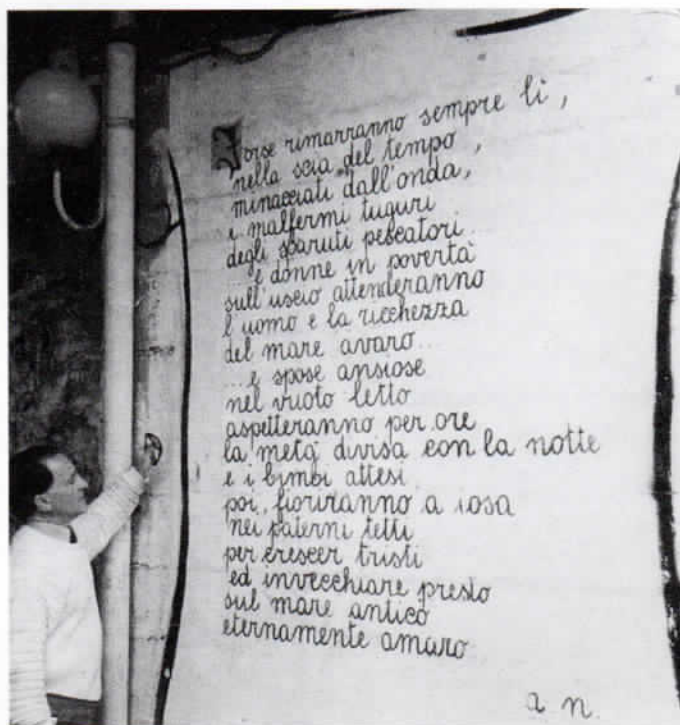 Forse rimarranno sempre lì,
nella scia del tempo,
minacciati dall'onda,
i malfermi tuguri
degli sparuti pescatori...
...e donne in povertà
sull'uscio attenderanno
l'uomo e la ricchezza
del mare avaro...
...e spose ansiose
nel vuoto letto
aspetteranno per ore
la metà divisa con la notte
e i bimbi attesi
poi, fioriranno a iosa
nei paterni tetti
per crescer tristi
ed invecchiare presto
sul mare antico
eternamente amaro
a n.